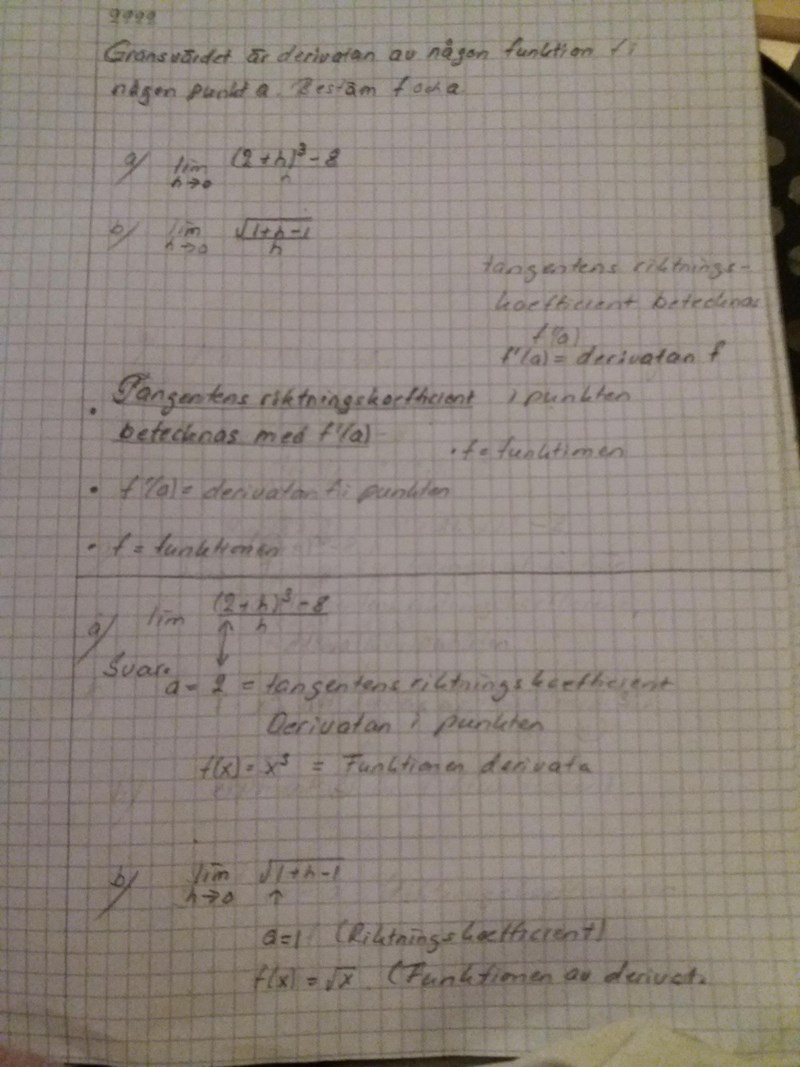 2222
Gränsvärdet är derivatan av någon funktion f i
någon punkt a. Bestäm f och a
a) lim h→0 (2+h)³-8 / h
b) lim h→0 √1+h-1 / h
tangentens riktnings-
koefficient betecknas
f'(a)
f'(a) = derivatan f
i punkten
• f = funktionen
• Tangentens riktningskoefficient
betecknas med f'(a)
• f'(a) = derivatan f i punkten
• f = funktionen
a) lim (2+h)³-8 / h
Svar.
a = 2 = tangentens riktningskoefficient
Derivatan i punkten
f(x) = x³ = Funktionen derivata
b) lim h→0 √1+h-1
a=1 (Riktningskoefficient)
f(x) = √x (Funktionen av derivat.